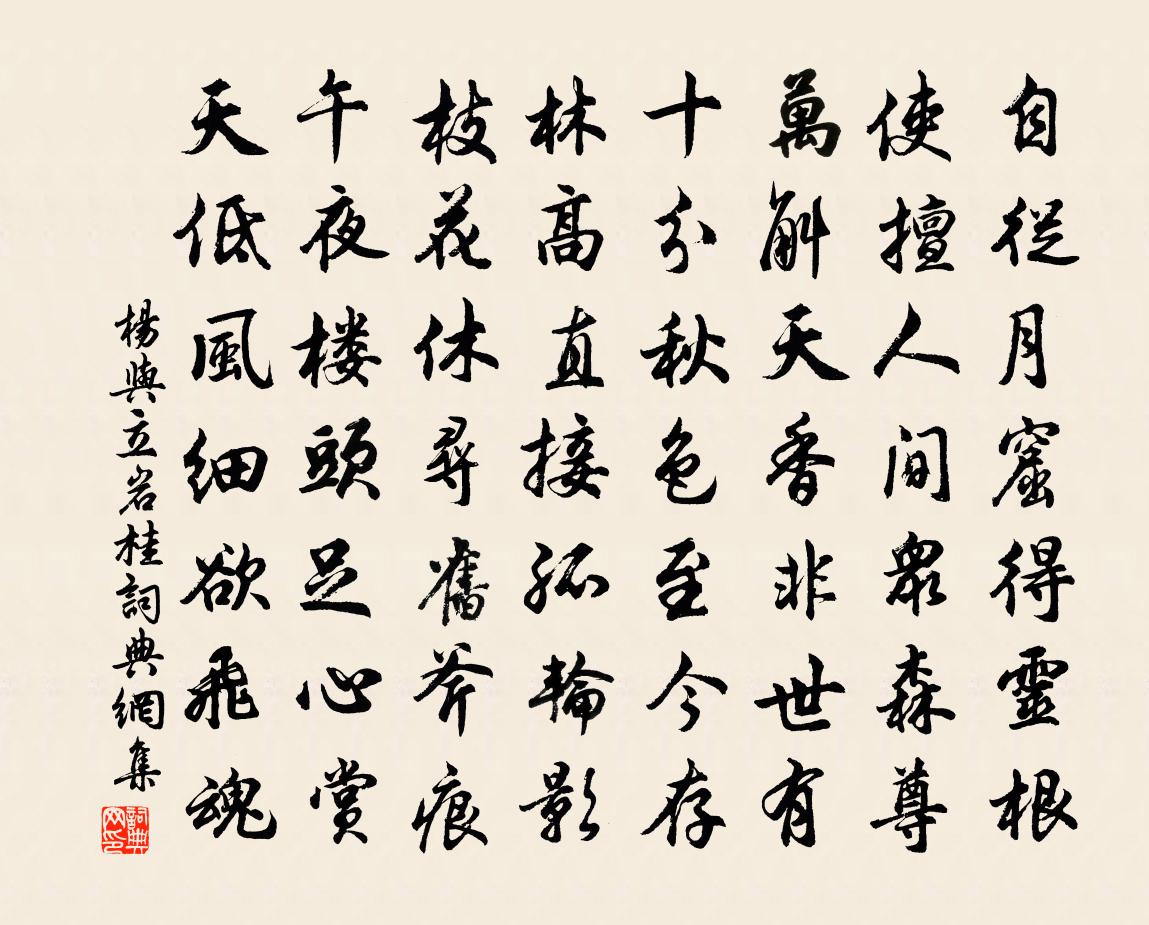 自從月窟得靈根
使擅人間衆森尊
萬斛天香非世有
十分秋色至今存
林高直接孤輪影
枝花休尋舊斧痕
午夜楼頭足心賞
天低風細欲飛魂
楊與立岩桂詞典網集
詞典網印